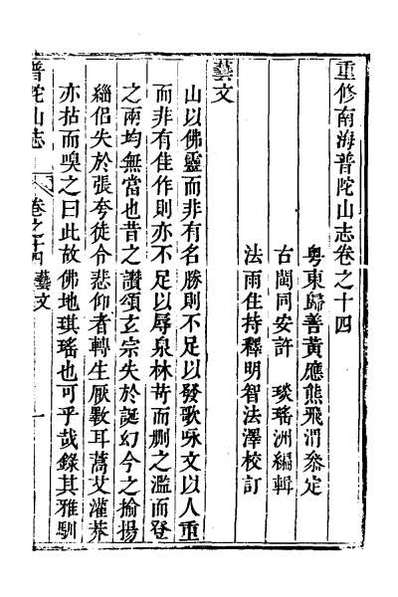 重修南海普陀山志卷之十四
粤東歸善黃應熊飛渭叅定
古閩同安許　琰瑤洲編輯
法雨住持釋明智法澤校訂
藝文
山以佛靈而非有名勝則不足以發歌咏文以人重
而非有佳作則亦不足以辱泉林苛而刪之濫而登
之兩均無當也昔之讃頌玄宗失於誕幻今之揄揚
緇侣失於張夸徒令悲仰者轉生厭斁耳蒿艾灌莽
亦拈而嗅之曰此故佛地琪瑤也可乎哉錄其雅馴
普陀山志
卷之十四　藝文
一